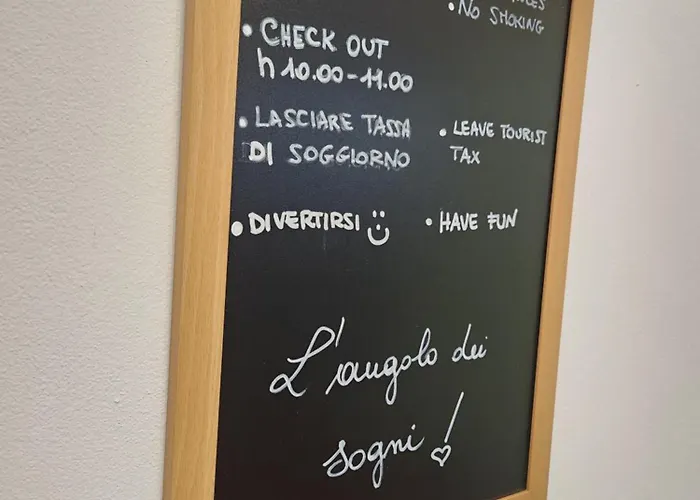 • NO SMOKING
• CHECK OUT
h 10.00-11.00
• LASCIARE TASSA
DI SOGGIORNO
• LEAVE TOURIST
TAX
• DIVERTIRSI
• HAVE FUN
L'angolo dei
sogni!